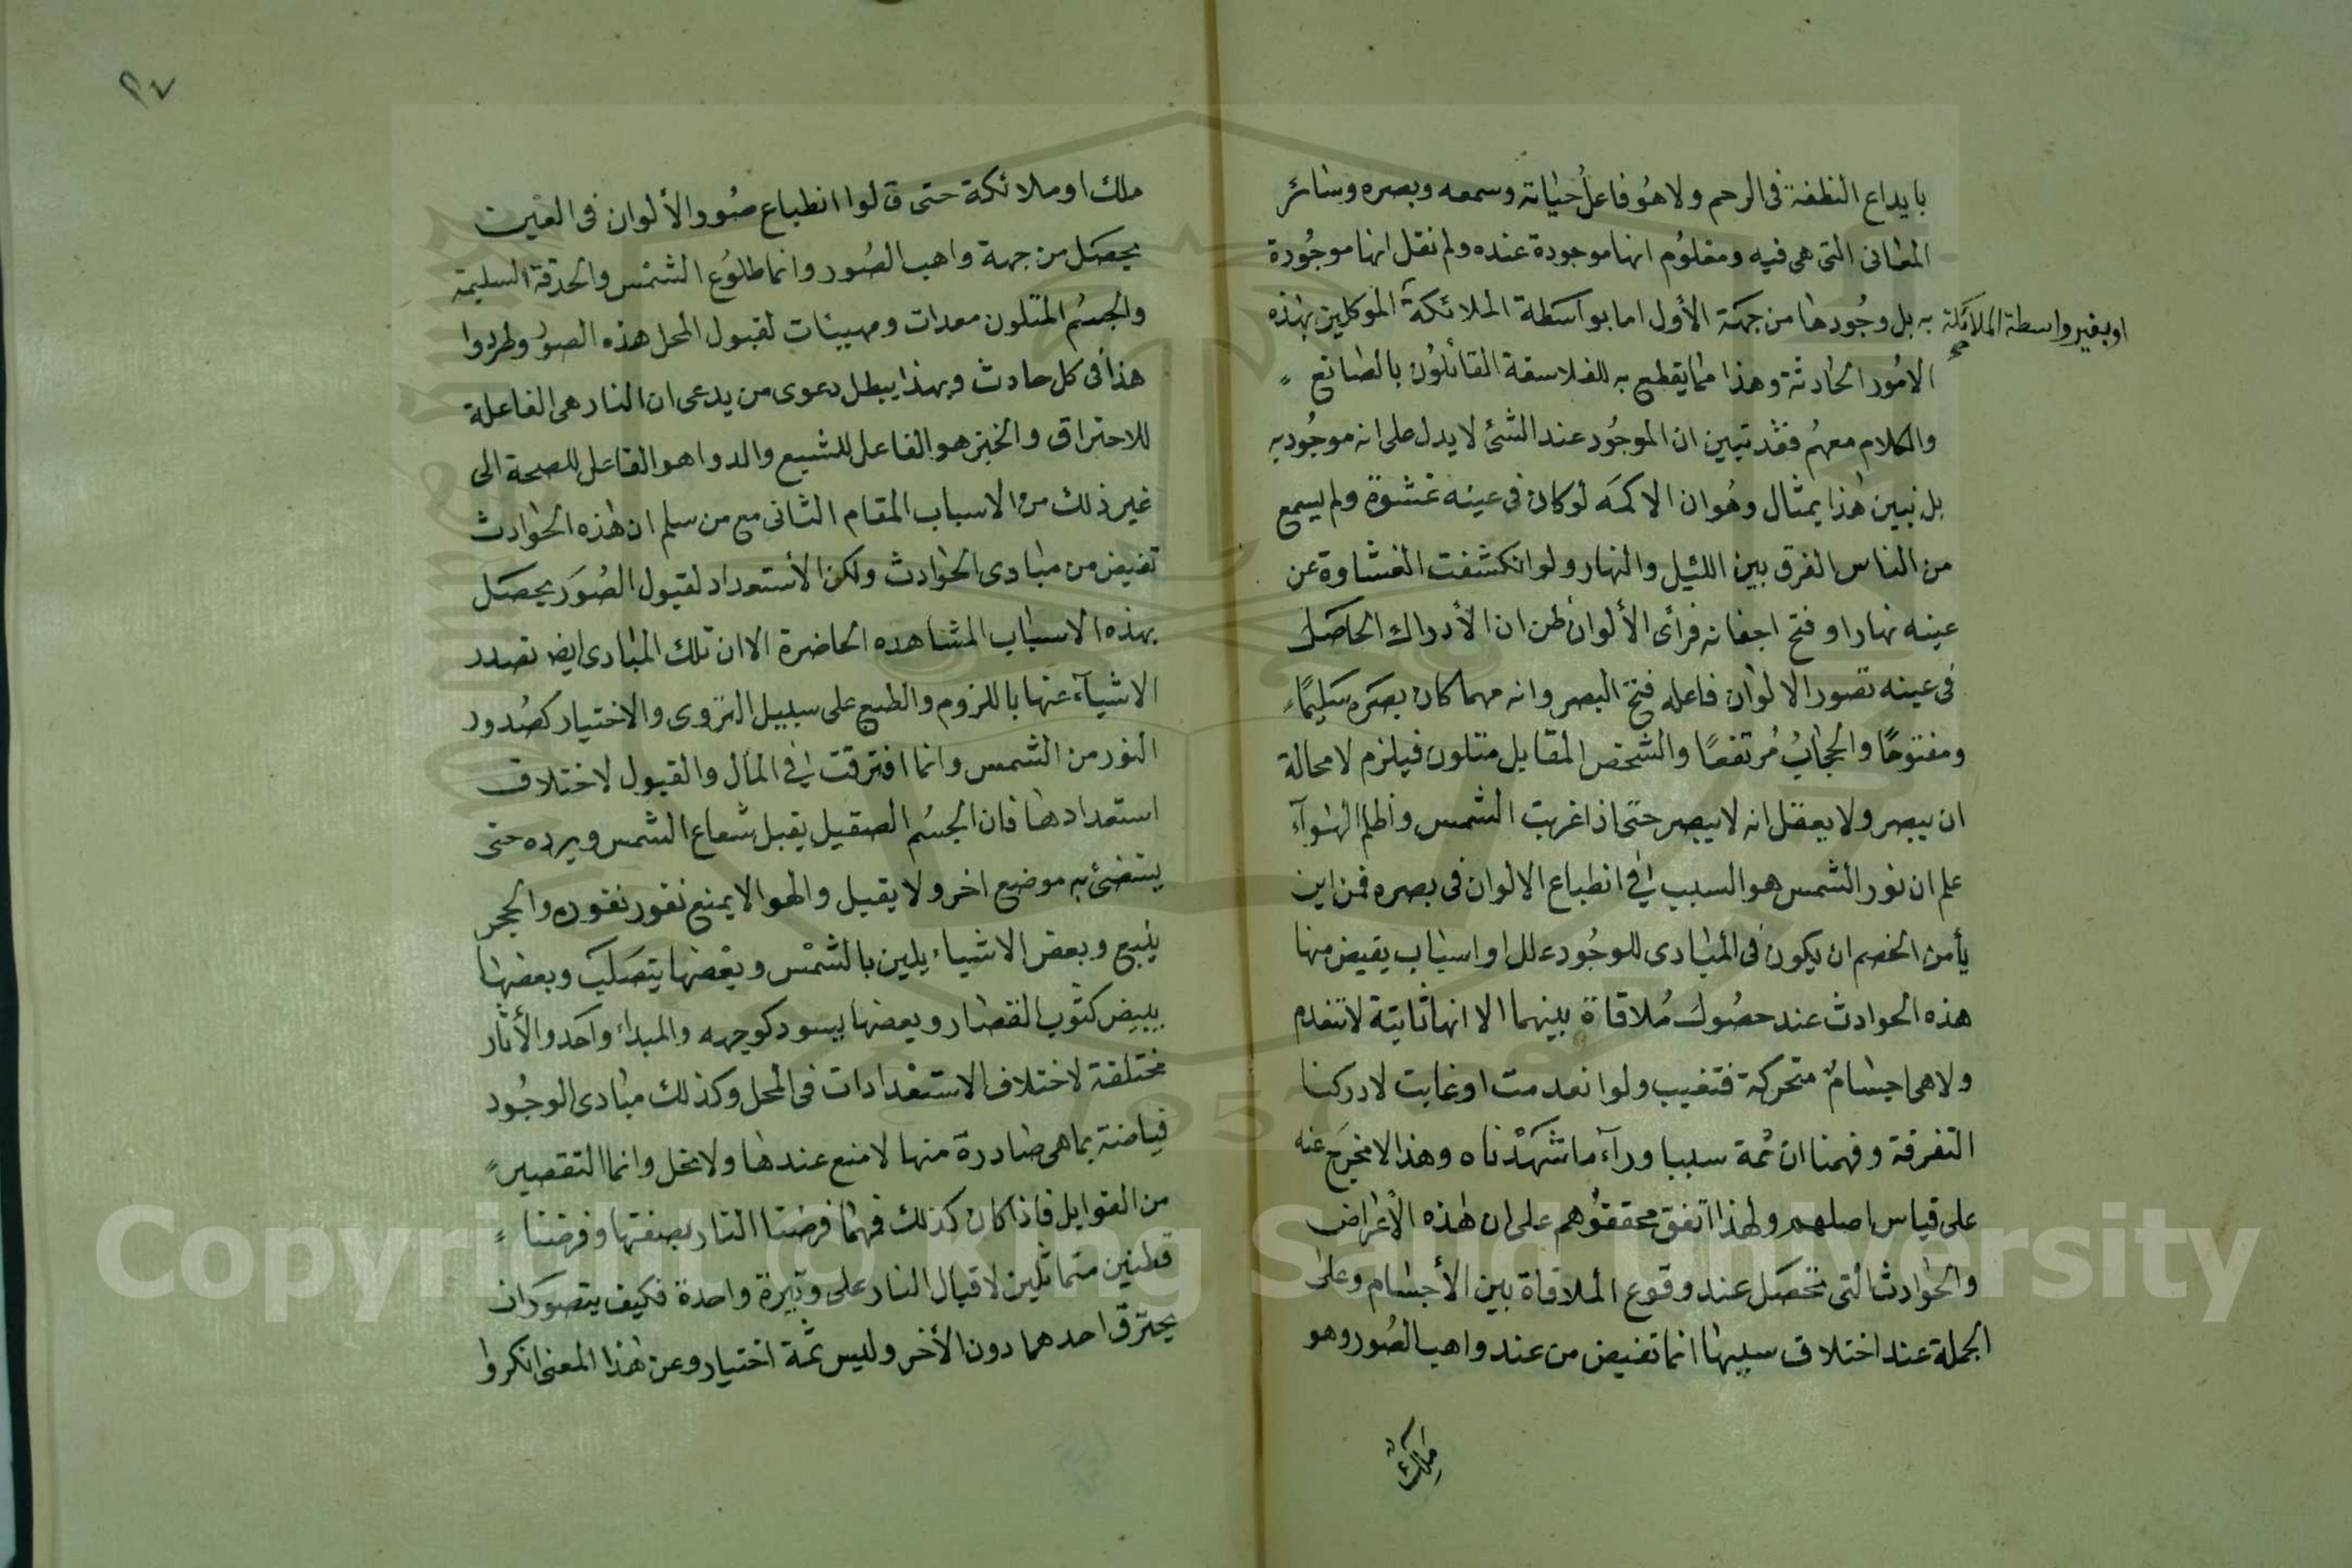 بايداع النطفة فى الرحم ولا هُو فاعلُ حياته وسمعه وبصره وسائر
المعانى التى هى فيه ومعلوُم انها موجودة عنده ولم نقل انها موجُودة
به بل وجُودها من جهَة الأول اما بواسَطة الملائكة الموكلين بهذه
او بغير واسطة الملائكة صح
الامُور الحادثة وهذا مما يقطع به للفلاسفة القائلوُن بالصانع
والكلام معهُم فقد تبين ان الموجُود عند الشئ لا يدل على انه موجُود به
بل نبين هذا بمثال وهُو ان الاكمَه لو كان فى عينه غشوة ولم يسمع
من الناس الفرق بين الليل والنهار ولو انكشفت الغشاوة عن
عينه نهارا وفتح اجفانه فرأى الألوان ظن ان الأدراك الحاصَل
فى عينه تصور الالوان فاعله فتح البصر وانه مهما كان بصَره سَليمًا
ومفتوحًا والحجابُ مُرتفعًا والشخص المقابل متلون فيلزم لا محالة
ان يبصر ولا يعقل انه لا يبصر حتى اذا غربت الشمس واظلم الهَوآء
علم ان نور الشمس هو السبب فى انطباع الالوان فى بصره فمن اين
يأمن الخصم ان يكون فى المبادى للوجُود علل او اسباب يفيض منها
هذه الحوادث عند حصُول مُلاقاة بينهما الا انها ثابتة لا تنعدم
ولا هى اجسامٌ متحركة فتغيب ولو انعدمت او غابت لادركنا
التفرقة وفهمنا ان ثمة سببا ورآء ما شَهَدْناه وهذا لا مخرَج عنه
على قياس اصلهم ولهذا اتفق محققوُهم على ان هذه الأعراض
والحوادث التى تحصَل عند وقوع الملاقاة بين الأجسام وعلى
الجملة عند اختلاف سببها انما تفيض من عند واهب الصُور وهو
ملك
٢٧
ملك او ملائكة حتى قالوا انطباع صُور الألوان فى العين
يحصَل من جهة واهب الصُور وانما طلوُع الشمْس والحدقة السليمة
والجسُم المتلون معدات ومهيئات لقبول المحل هذه الصوُر وطردوا
هذا فى كل حادث وبهذا يبطل دعوى من يدعى ان النار هى الفاعلة
للاحتراق والخبز هو الفاعل للشبع والدوا هو الفاعل للصحة الى
غير ذلك من الاسباب المقام الثانى مع من سلم ان هذه الحوادث
تفيض من مبادى الحوادث ولكن الأستعداد لقبول الصُوَر يحصَل
بهذه الاسباب المشاهده الحاضرة الا ان تلك المبادى ايض تصدر
الاشيآء عنها باللزوم والطبع على سبيل التروى والاختيار كصُدور
النور من الشمس وانما افترقت فى المال والقبول لاختلاف
استعدادها فان الجسُم الصقيل يقبل شعاع الشمس ويرده حتى
يستضئ به موضع اخر ولا يقبل والهوا لا يمنع نفور نفوره والحجر
يمنع وبعض الاشياء يلين بالشمْس وبعْضها يتصَلب وبعضها
يبيض كثوب القصار وبعضها يسود كوجهه والمبداء واحَد والأثار
مختلفة لاختلاف الاستعْدادات فى المحل وكذلك مبادى الوجُود
فياضة بما هى صادرة منها لا منع عندها ولا بخل وانما التقصير
من القوابل فاذا كان كذلك فمهما فرضنا النار بصفتها وفرضنا
قطنين متماثلين لاقيال النار على وتيرة واحدة فكيف يتصوَر ان
يحترق احدهما دون الأخر وليس ثمة اختيار وعن هذا المعنى انكروا
Copyright © King Saud University
1957